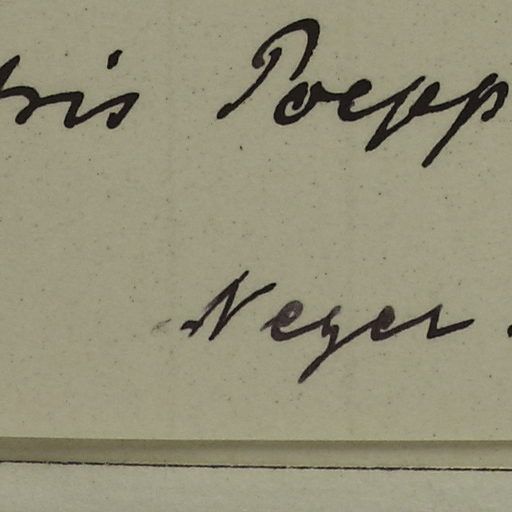 tris Poepp
Neger.